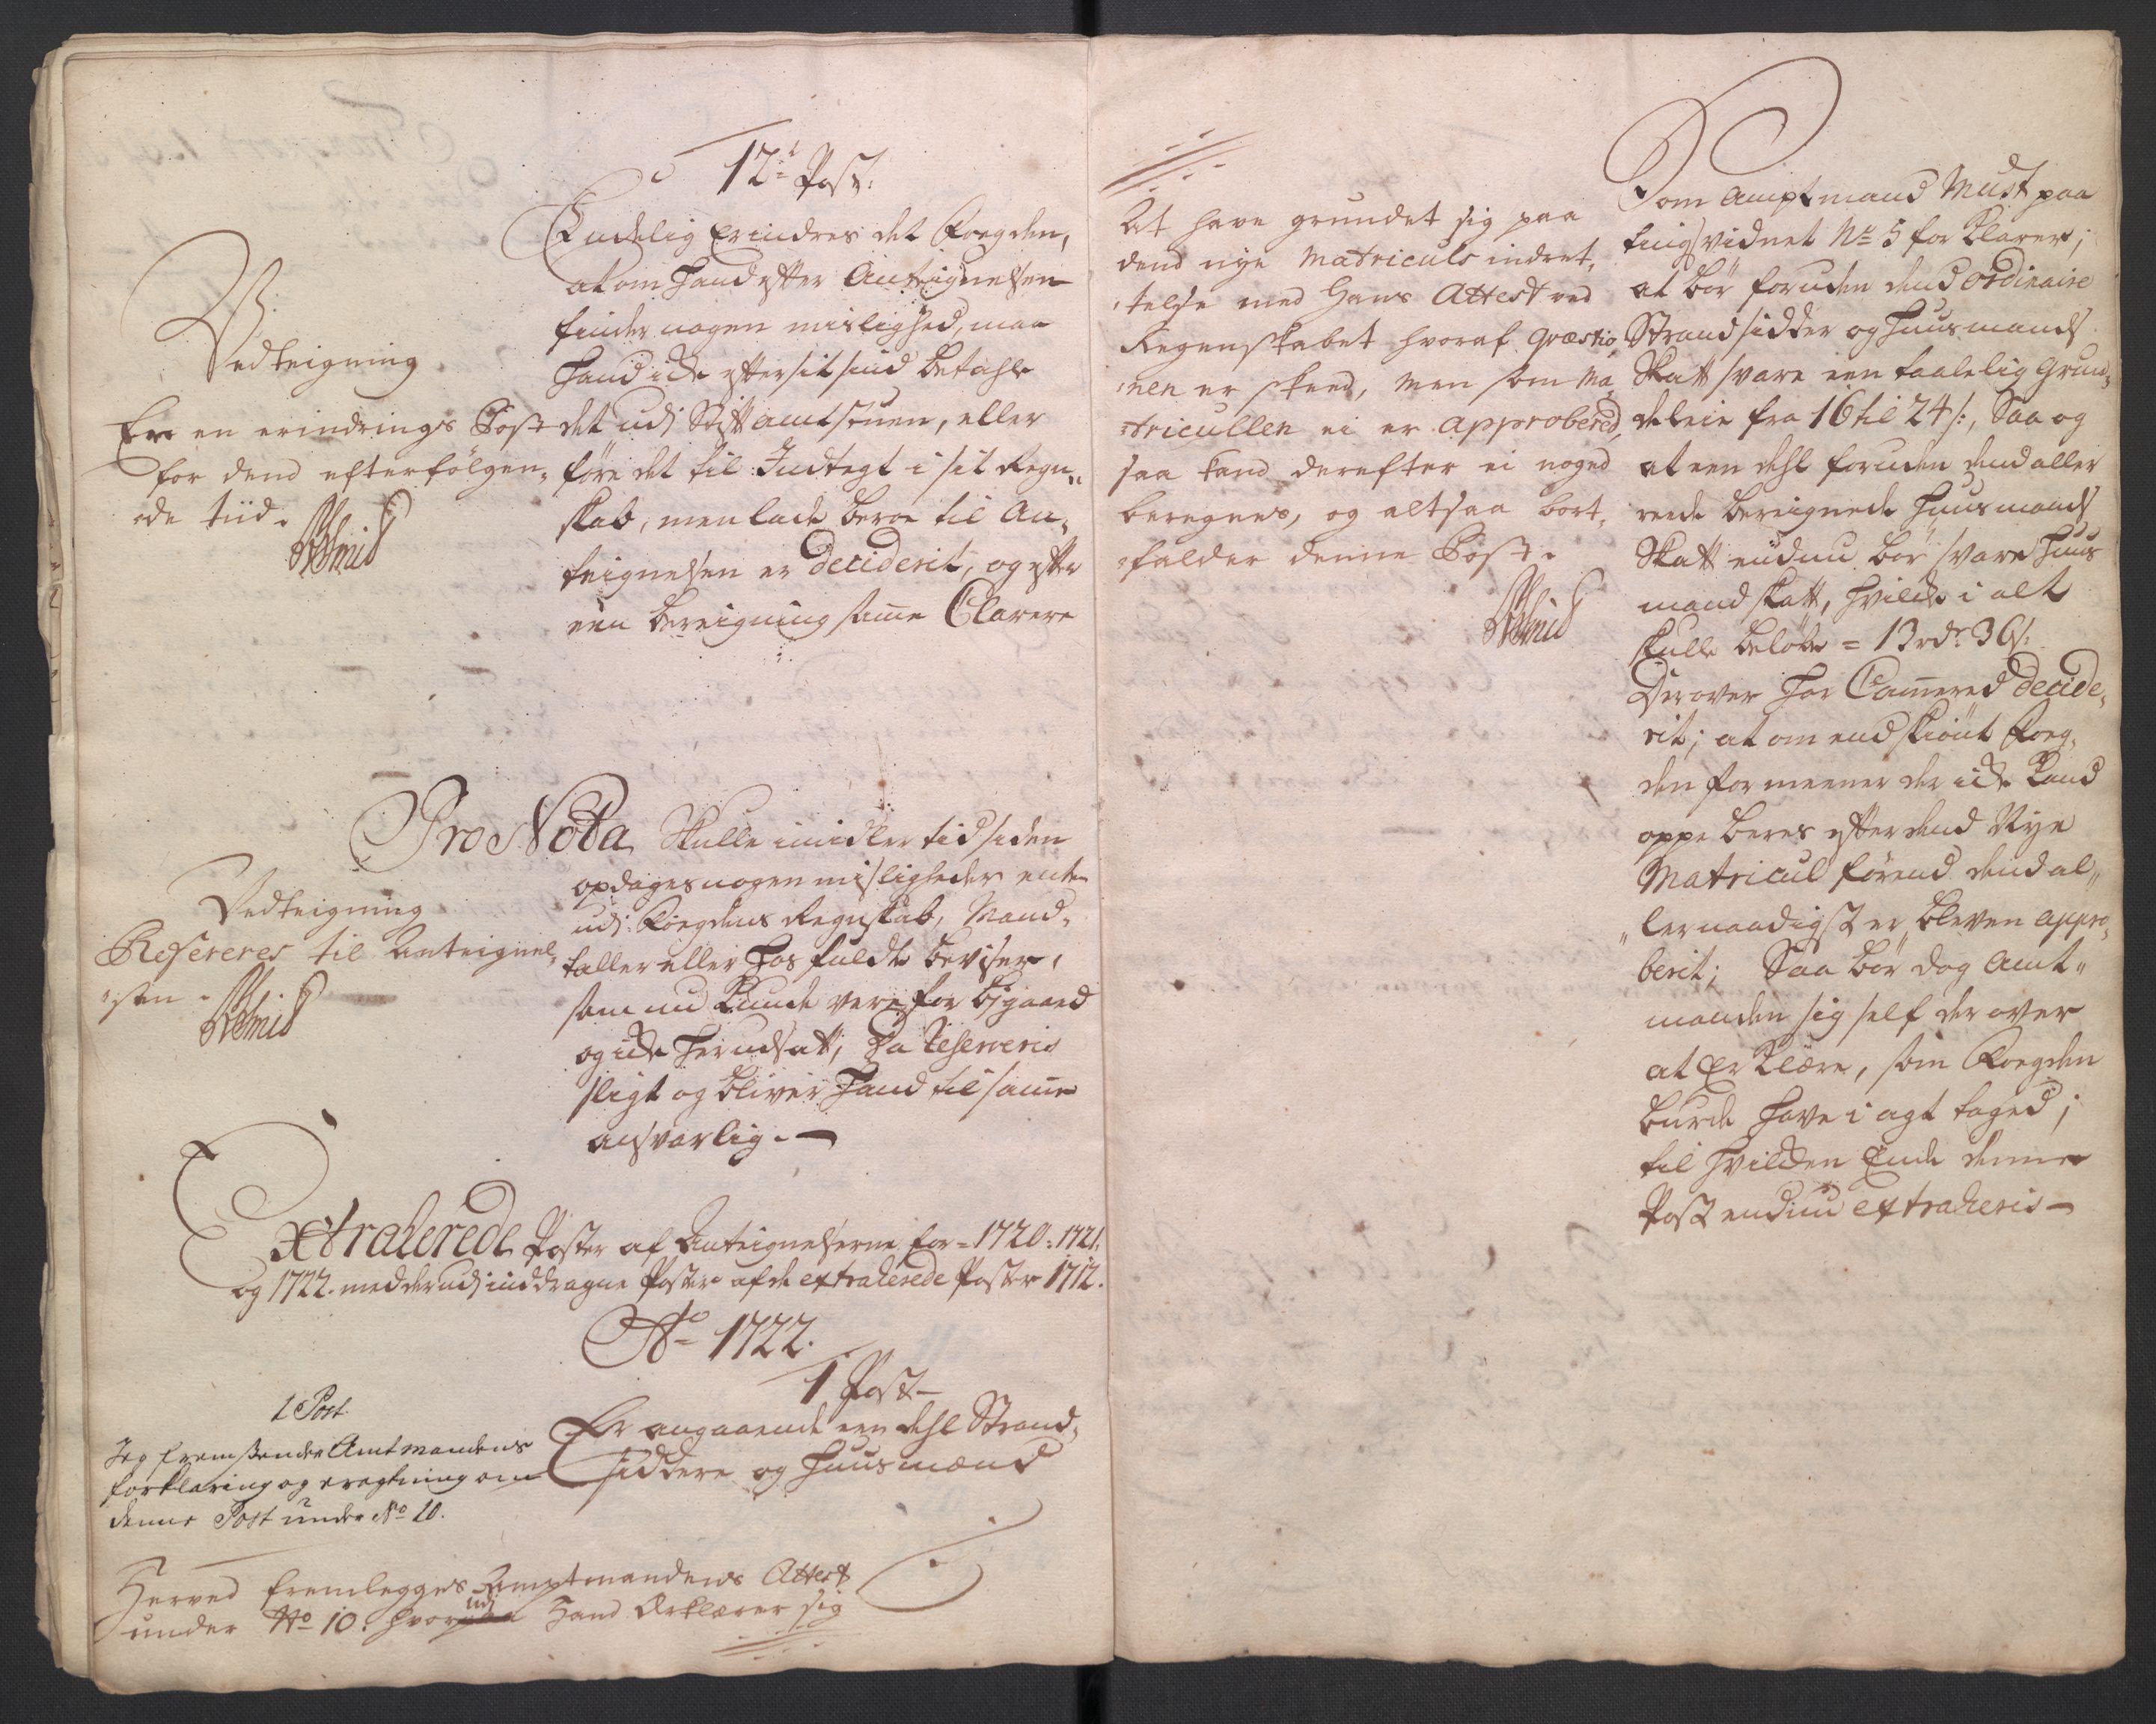 12te Post.
Endelig Erindres det Foegden,
at om Hand efter Antegnelsen
finder nogen mislighed, maa
Hand icke efter sit sind betahle
det udj Stiftamtstuen, eller
føre det til Indtegt i sit Regn„
skab, men lade beroe til An„
teignelsen er Deciderit, og efter
een bereigning samme Clarere
Vedteigning
Er en erindrings Post
for dend efterfølgen„
de tiid.
Pro Nota Skulle imidlertid siden
opdages nogen misligheder enten
udj Foegdens Regnskab, Mand„
taller eller Hos fuldte beviser,
som nu Kunde vere forbigaaed
og icke Herudsatt, Da Reserveris
sligt og bliver Hand til samme
ansvarlig. —
Vedteigning
Refereres til Anteignel„
„sen.
Extraherede Poster af Anteignelserne for = 1720: 1721.
og 1722. med derudj inddragne Poster af de extraherede Poster 1712.
No 1722.
1 Post —
Er angaaende een dehl Strand„
siddere og Huusmænd
1 Post.
Jeg fremsender Amtmandens
forklaring og eragtning om
denne Post under No 10.
Herved fremlegges Amptmandens Attest
under No 10. hvorudj Hand Erklærer sig
At have grundet sig paa
dend nye Matriculs indret„
„telse med Hans Attest ved
Regenskabet hvoraf Qvæstio„
„nen er skeed, Men som Ma„
„tricullen ei er approbered,
saa kand derefter ei noged
beregnes, og altsaa bort„
„falder denne Post.
Som Amptmand Must paa
tingsvidnet No 5 forklarer,
at bør foruden dend ordinaire
Strandsidder og Huusmands
Skatt svare een taalelig Grun„
deleie fra 16 til 24 s:, Saa og
at een dehl foruden dend aller
reede bereignede Huusmands
Skatt endnu bør svare Huus
mand skatt, Hvilcke i alt
skulle beløbe = 13 rdr. 36 s:
Derover Har Cammered Decide„
rit; at om endskiønt Foeg„
den formeener der icke Kand
oppeberes efter dend Nye
Matricul førend dend al„
„lernaadigst er bleven appro„
berit; Saa bør dog Amt„
manden sig self derover
at Erklære, som Foegden
burde Have i agt taged;
til Hvilcken Ende denne
Post endnu extraheris —